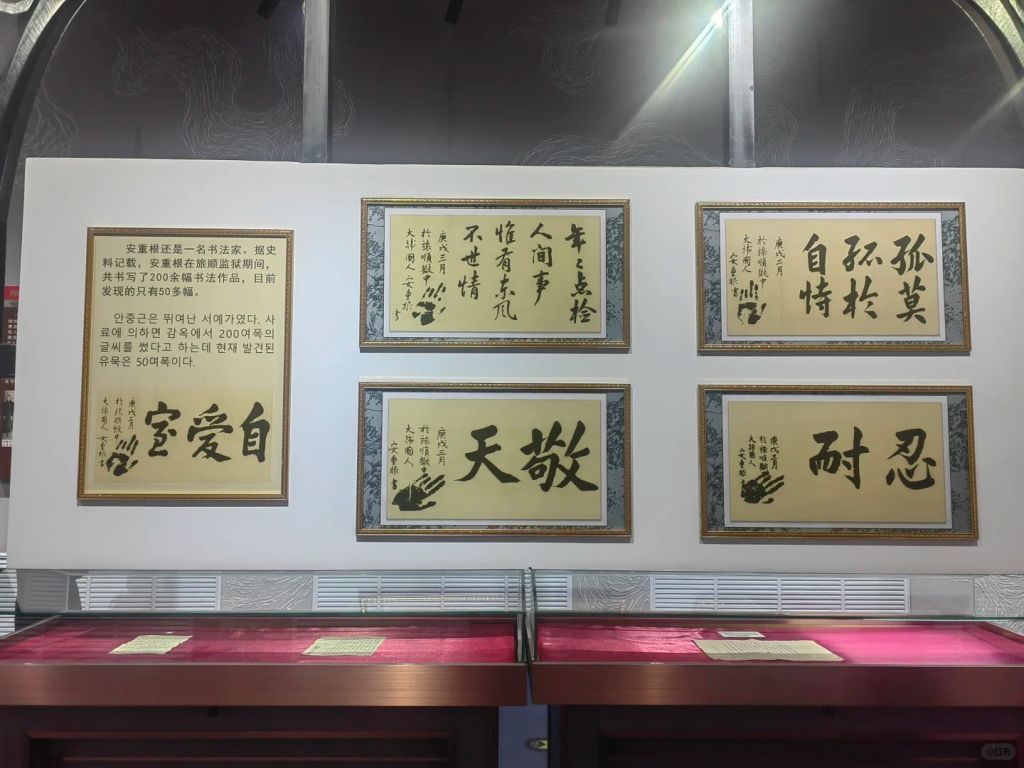 安重根还是一名书法家。据史
料记载，安重根在旅顺监狱期间，
共书写了200余幅书法作品，目前
发现的只有50多幅。
안중근은 뛰여난 서예가였다. 사
료에 의하면 감옥에서 200여폭의
글씨를 썼다고 하는데 현재 발견된
유묵은 50여폭이다.
自愛室
庚戌二月
於旅順獄中
大韓國人 安重根 書
年々点檢
人間事
惟有東風
不世情
庚戌三月
於旅順獄中
大韓國人 安重根 書
孤莫
孤於
自恃
庚戌二月
於旅順獄中
大韓國人
安重根 書
敬天
庚戌三月
於旅順獄中
大韓國人
安重根 書
忍耐
於旅順獄中
大韓國人
安重根 書
小红书